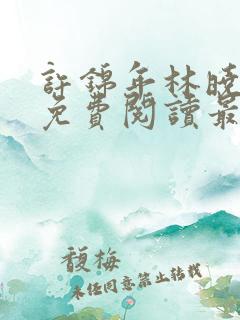 許錦年林曉
免費閱讀最
馥梅
未經同意禁止轉載